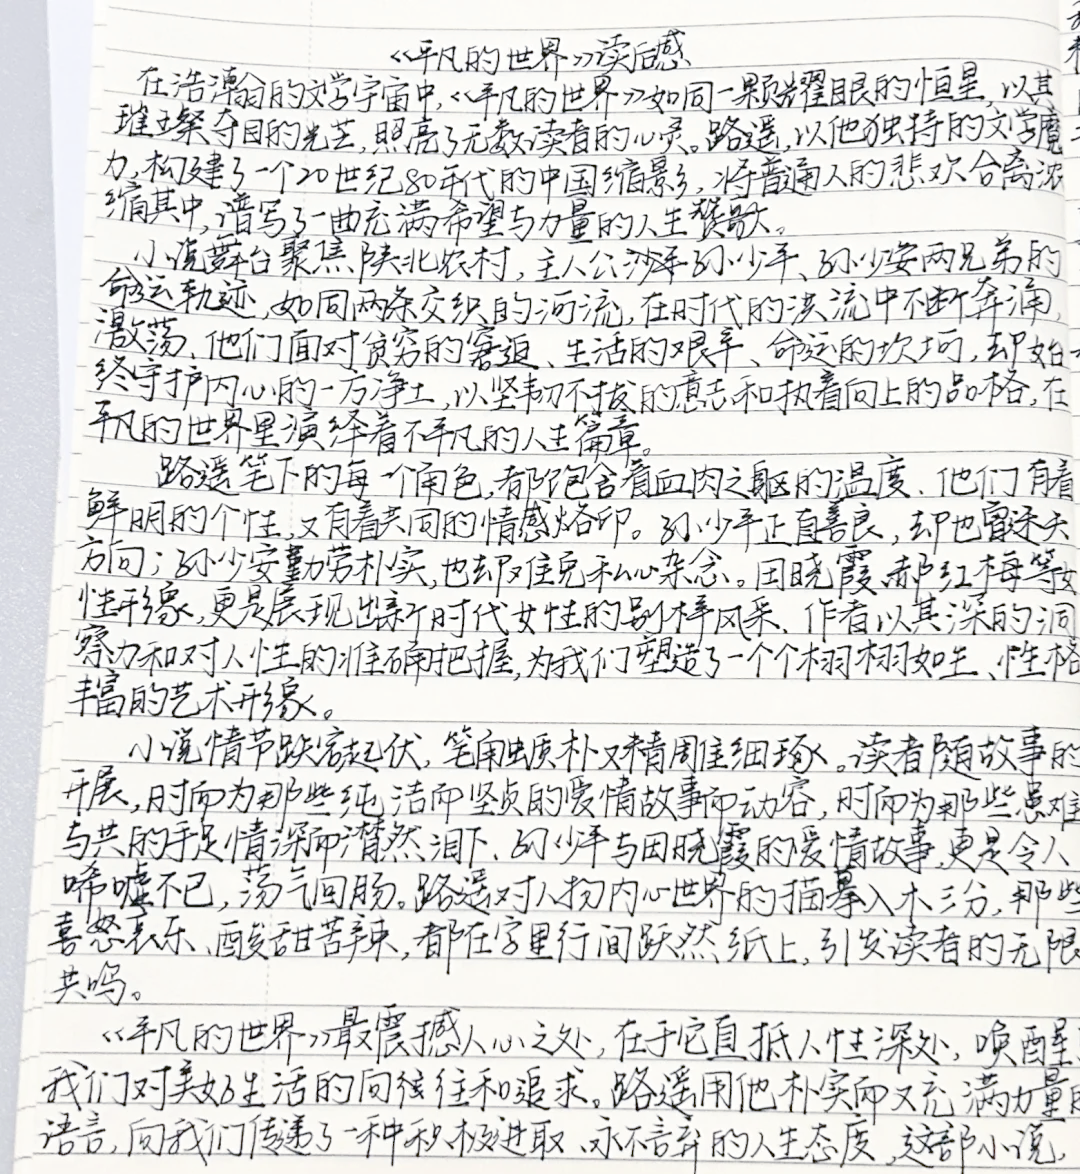 《平凡的世界》读后感
在浩瀚的文学宇宙中,《平凡的世界》如同一颗耀眼的恒星,以其
璀璨夺目的光芒,照亮了无数读者的心灵。路遥,以他独特的文学魔
力,构建了一个20世纪80年代的中国缩影,将普通人的悲欢合离浓
缩其中,谱写了一曲充满希望与力量的人生赞歌。
小说舞台聚焦陕北农村,主人公孙少平、孙少安两兄弟的
命运轨迹,如同两条交织的河流,在时代的洪流中不断奔涌,
激荡、他们面对贫穷的窘迫、生活的艰辛、命运的坎坷,却始
终守护内心的一方净土,以坚韧不拔的意志和执着向上的品格,在
平凡的世界里演绎着不平凡的人生篇章。
路遥笔下的每一个角色,都饱含着血肉之躯的温度、他们有着
鲜明的个性,又有着共同的情感烙印。孙少平正直善良,却也曾迷失
方向;孙少安勤劳朴实,也却难免私心杂念。田晓霞、郝红梅等女
性形象,更是展现出新时代女性的别样风采、作者以其深的洞
察力和对人性的准确把握,为我们塑造了一个个栩栩如生、性格
丰富的艺术形象。
小说情节跌宕起伏,笔触质朴又精周佳细琢。读者随故事的
开展,时而为那些纯洁而坚贞的爱情故事而动容,时而为那些患难
与共的手足情深而潸然泪下、孙少平与田晓霞的爱情故事,更是令人
唏嘘不已,荡气回肠。路遥对人物内心世界的描摹入木三分,那些
喜怒哀乐、酸甜苦辣,都在字里行间跃然纸上,引发读者的无限
共鸣。
《平凡的世界》最震撼人心之处,在于它直抵人性深处,唤醒
我们对美好生活的向往和追求。路遥用他朴实而又充满力量的
语言,向我们传递了一种积极进取、永不言弃的人生态度,这部小说,